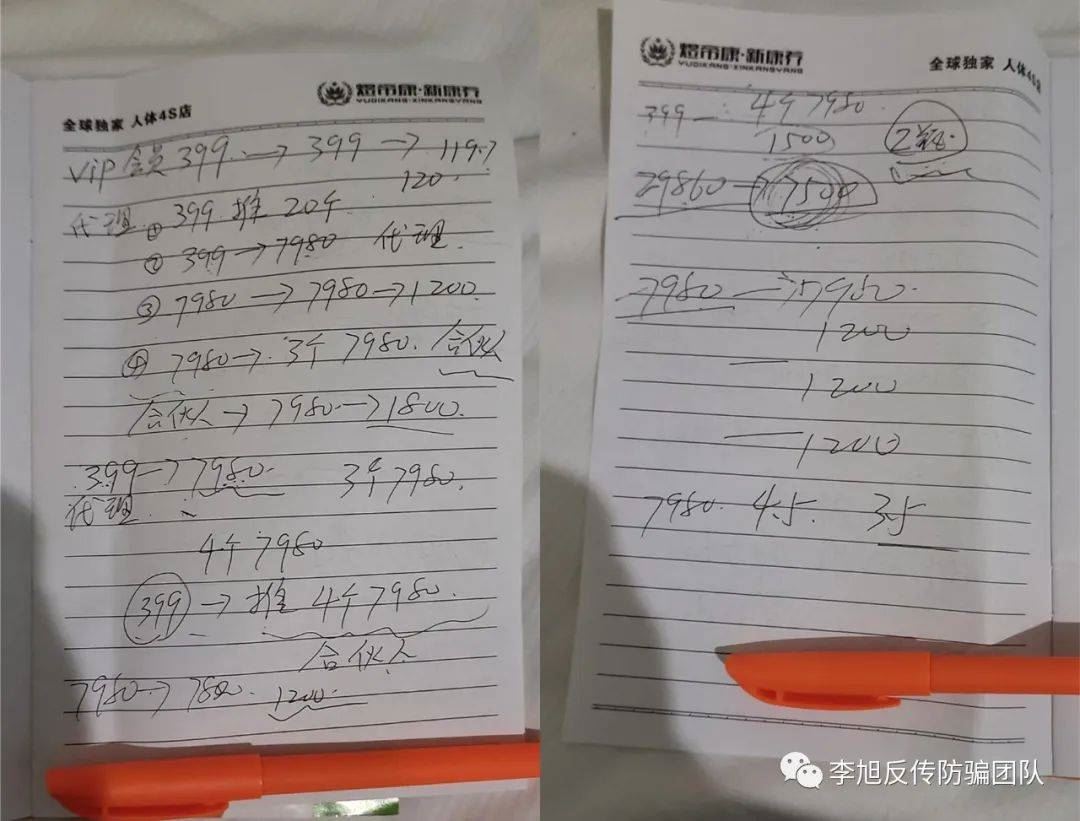 全球独家 人体4S店
煜帝康·新康养
YUDIKANG·XINKANGYANG
Vip会员399 → 399 → 119.7
120.
代理 ① 399 推 20个
② 399 → 7980 代理.
③ 7980 → 7980 → 1200.
④ 7980 → 3个 7980. 合伙
合伙人 → 7980 → 1800.
399 → 7980. 3个7980.
代理.
4个7980
399 → 推 4个7980.
合伙人
7980 → 7800. 1200.
煜帝康·新康养
YUDIKANG·XINKANGYANG
全球独家 人体4S店
399 — 4个7980
1500
29860 → 7500
7980 →
1200
— 1200
— 1200
7980. 4.5. 3.5
李旭反传防骗团队